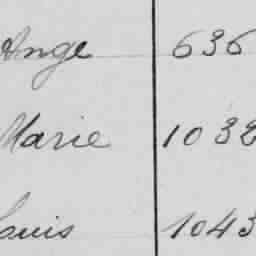 Ange 636
Marie 1032
Louis 1043